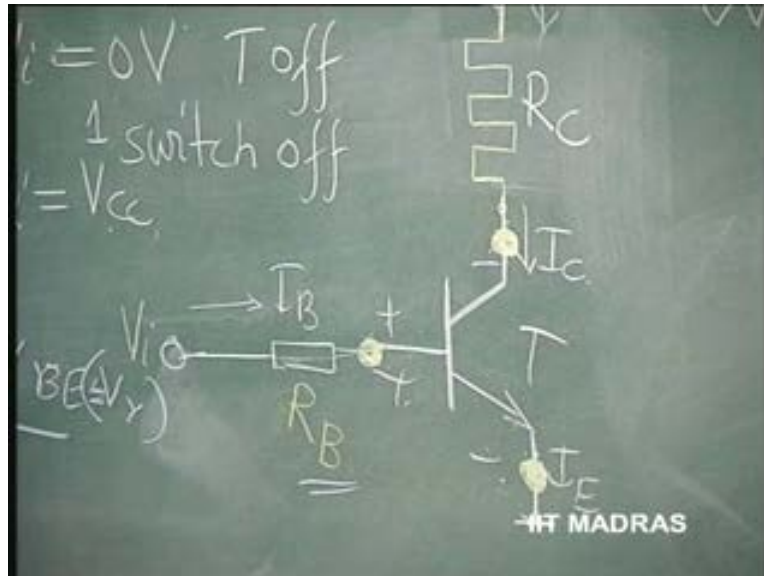 i = 0V T off
1 switch off
= VCC
RC
IC
IB
Vi
+
-
T
BE(=Vγ)
RB
+
-
IE
IIT MADRAS